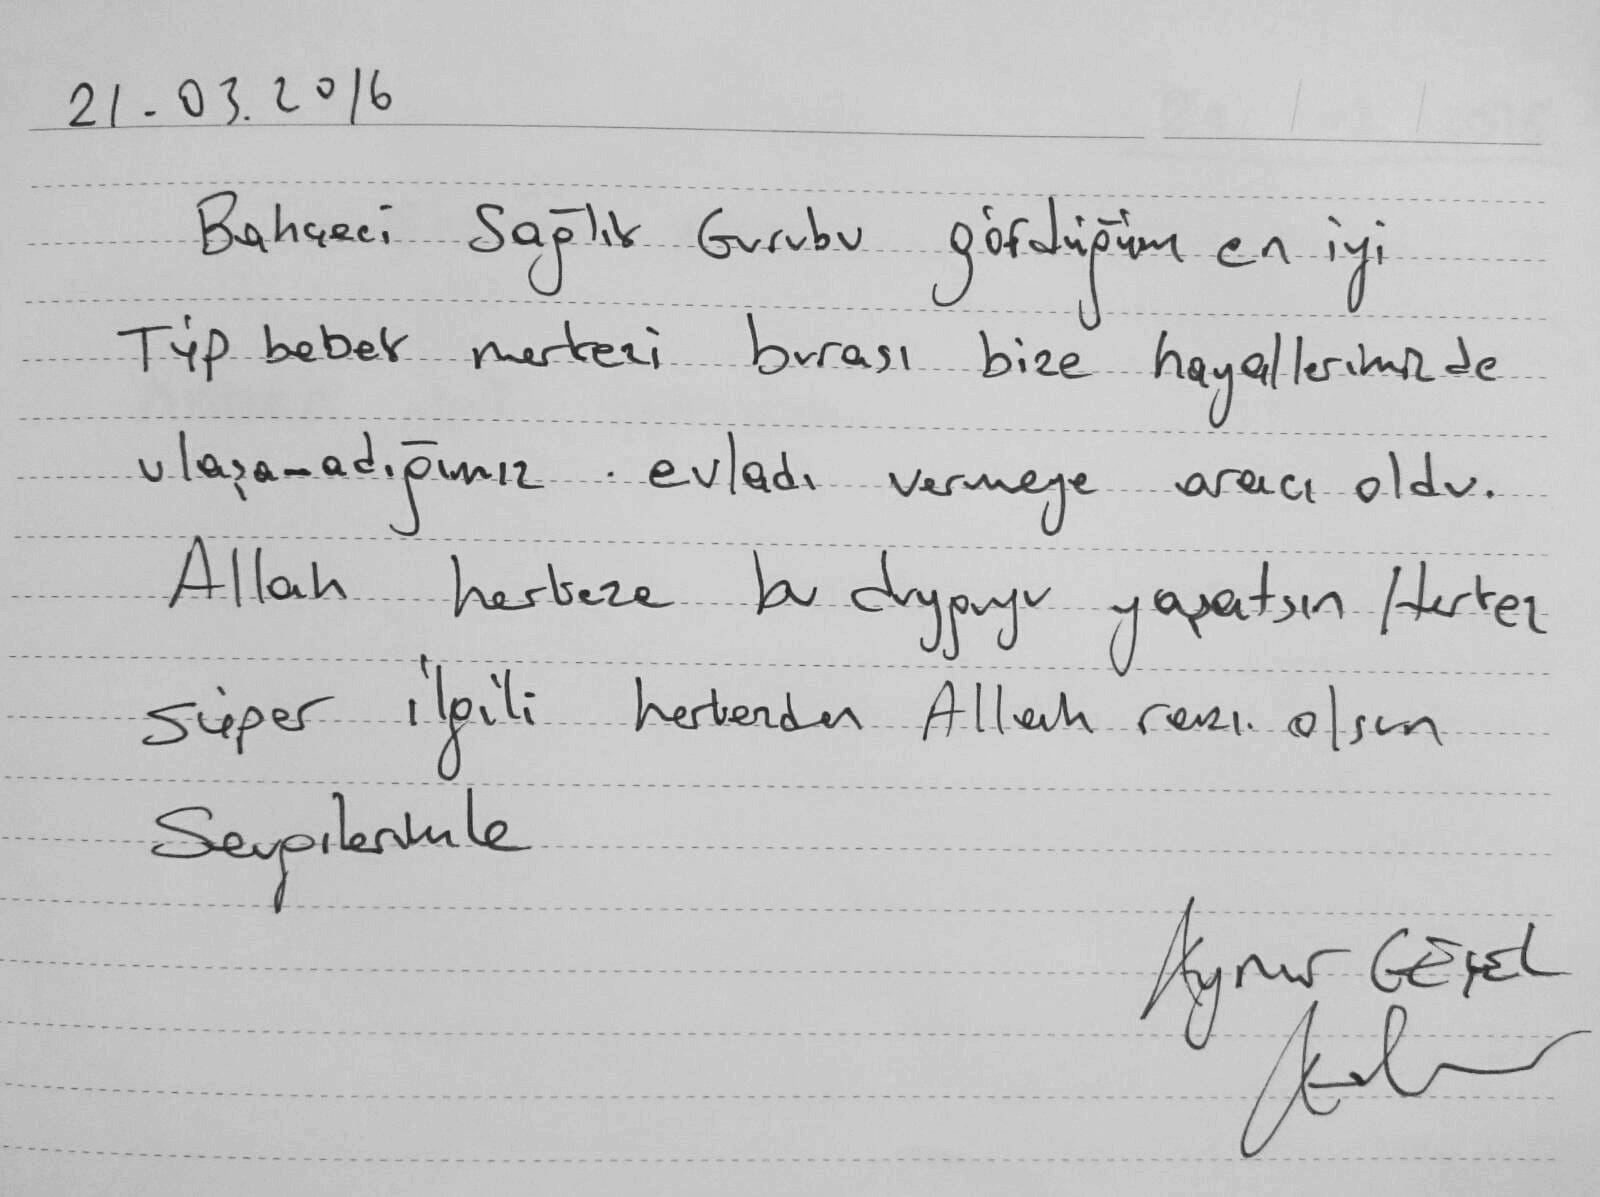 21-03.2016
Bahçeci Sağlık Gurubu gördüğüm en iyi
Tüp bebek merkezi burası bize hayallerimizde
ulaşa-adığımız . evladı vermeye aracı oldu.
Allah herkeze bu duyguyu yaşatsın Herkez
süper ilgili herkezden Allah razı olsun
Sevgilerimle
Aynur GÖÇEL